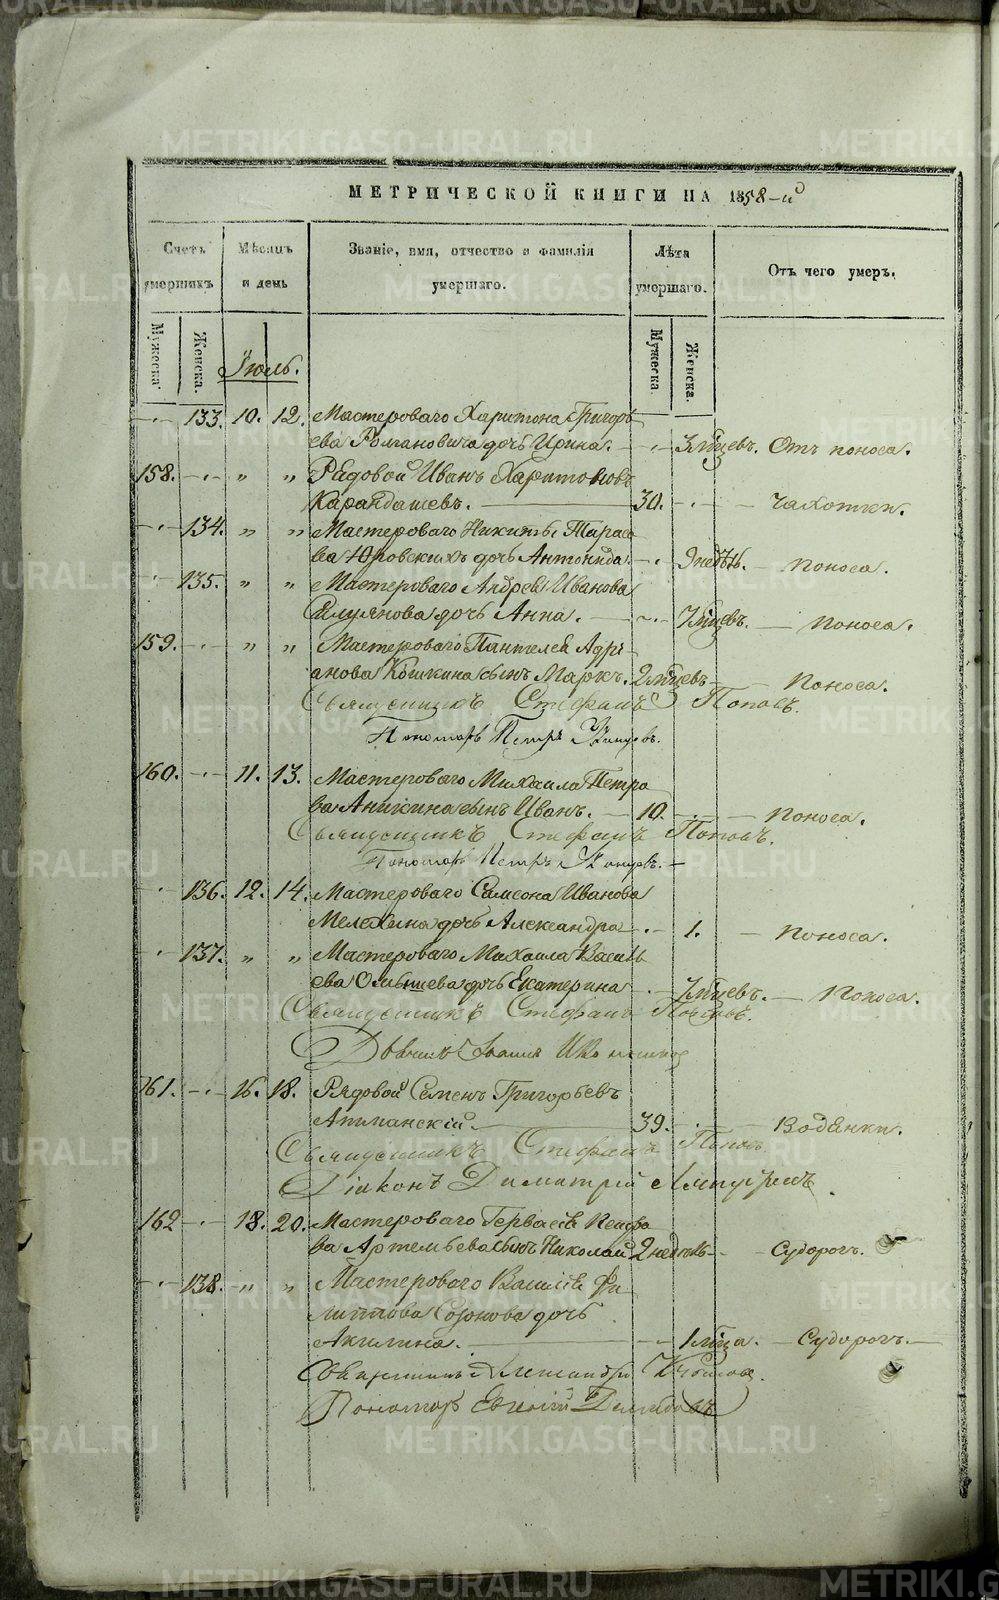 МЕТРИЧЕСКОЙ КНИГИ НА 1858-й
Счетъ умершихъ
Мѣсяцъ и день
Званіе, имя, отчество и фамилія умершаго.
Лѣта умершаго.
Отъ чего умеръ.
Мужеска.
Женска.
Мужеска.
Женска.
Іюль.
133. 10. 12. Мастероваго Харитона Григорь
ева Романовича дочь Ирина. 3 мѣсцевъ. Отъ поноса.
158. " " Рядовой Иванъ Харитоновъ
Карандашевъ. 30. Чахотки.
134. " " Мастероваго Никиты Тарасо
ва Юровскихъ дочь Антонида. 9 недѣль. Поноса.
135. " " Мастероваго Андрея Иванова
дочь Анна. 7 мѣсцевъ. Поноса.
159. " " Мастероваго Пантелея Адрі
анова Кошкина сынъ Маркъ. 2 мѣсцевъ Поноса.
Священникъ Стефанъ Поповъ.
Пономарь Петръ
160. 11. 13. Мастероваго Михаила Петро
ва Аникина сынъ Иванъ. 10. Поноса.
Священникъ Стефанъ Поповъ.
Пономарь Петръ
136. 12. 14. Мастероваго Самсона Иванова
Мелехина дочь Александра 1. Поноса.
137. " " Мастероваго Михаила Василь
ева дочь Екатерина 7 мѣсцевъ. Поноса.
Священникъ Стефанъ Поповъ.
161. 16. 18. Рядовой Семенъ Григорьевъ
39. Водянки.
Священникъ Стефанъ Поповъ.
Діаконъ Димитрій
162 18. 20. Мастероваго Гервасія
ва Артемьева сынъ Николай 2 недѣль Судорогъ.
138. " " Мастероваго Василія Фи
липпова Созонова дочь
Акилина. 1 мѣсца. Судорогъ.
Священникъ Александръ
Пономарь Евгеній
METRIKI.GASO-URAL.RU